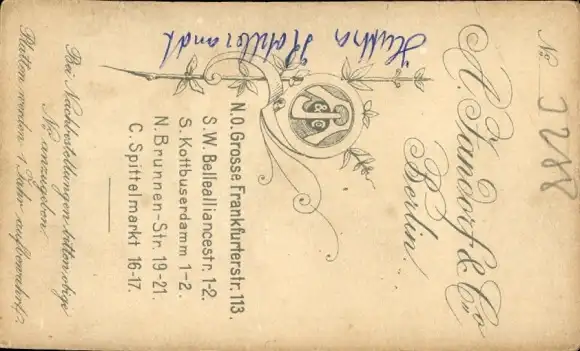 № 5288
A. Jandorf & Co
Berlin.
N.O. Grosse Frankfurterstr. 113.
S.W. Bellealliancestr. 1-2.
S. Kottbuserdamm 1-2.
N. Brunnen-Str. 19-21.
C. Spittelmarkt 16-17.
Bei Nachbestellungen bitten obige
№ anzugeben.
Platten werden 1 Jahr aufbewahrt.